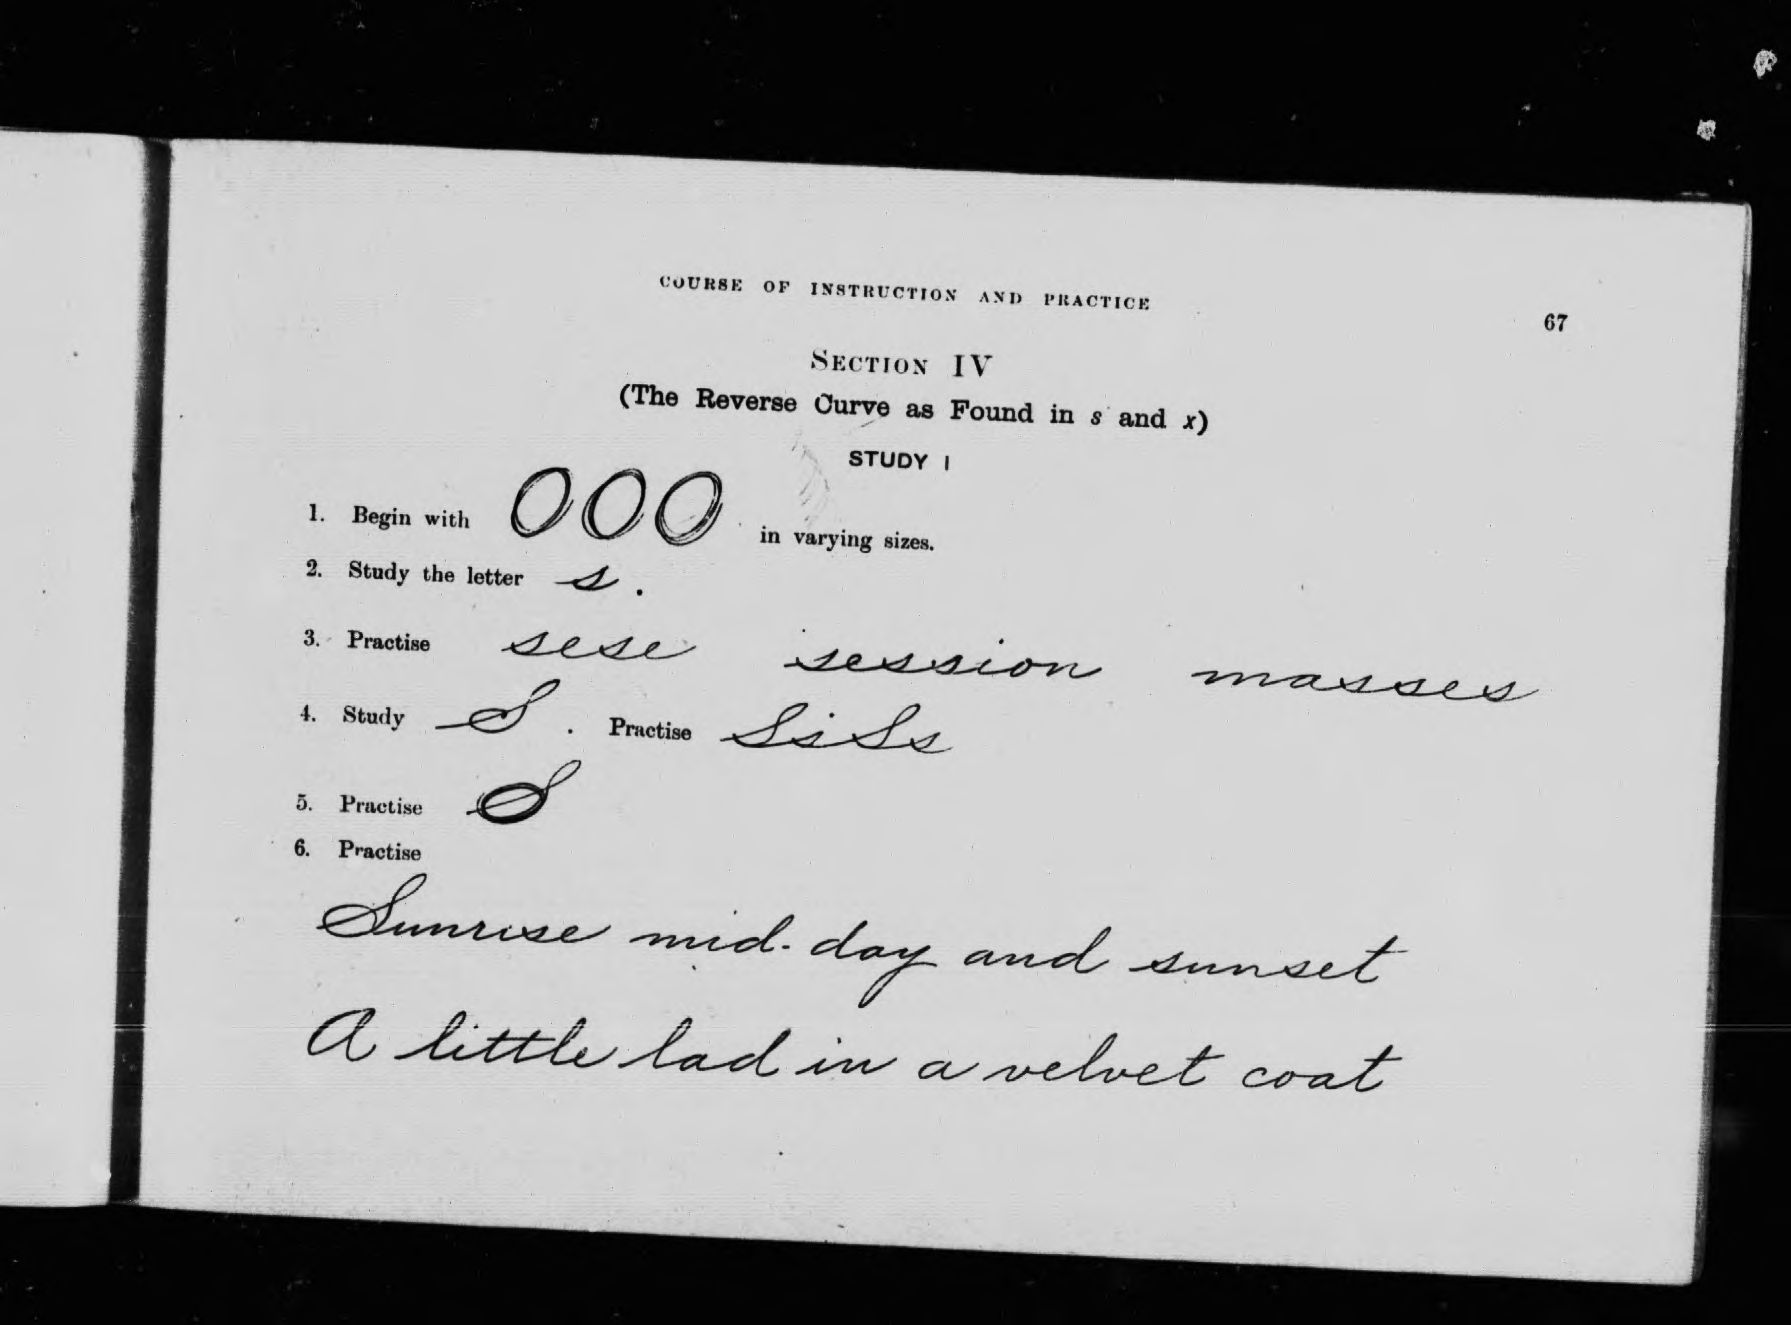 COURSE OF INSTRUCTION AND PRACTICE
67
SECTION IV
(The Reverse Curve as Found in s and x)
STUDY I
1. Begin with OOO in varying sizes.
2. Study the letter s.
3. Practise sese session masses
4. Study S. Practise SsSs
5. Practise S
6. Practise
Sunrise mid-day and sunset
A little lad in a velvet coat